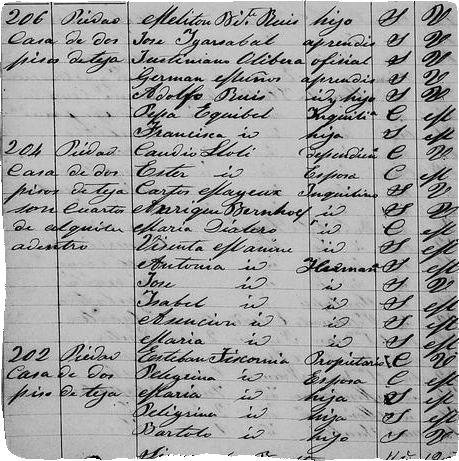 206 Piedad Meliton Bta Ruis hijo S V
Casa de dos Jose Igarsabal aprendis S V
pisos de teja Justiniano Olibera oficial S V
German Muños aprendis S V
Adolfo Ruis id y hijo S V
Pepa Equibel C M
Francisca id hija S M
204 Piedad Claudio C V
Casa de dos Ester id Esposa C M
pisos de teja Carlos Mayeux Inquilino S V
son Cuartos Enrique id S V
de alquiler Maria id C M
adentro id S M
Antonia id S M
Jose id id S V
Isabel id id S M
Asencion id id S M
Maria id id S M
202 Piedad Esteban Fisconia Propietario C V
Casa de dos Pelegrina id Esposa C M
piso de teja Maria id hija S M
Peligrina id hija S M
Bartolo id hijo S